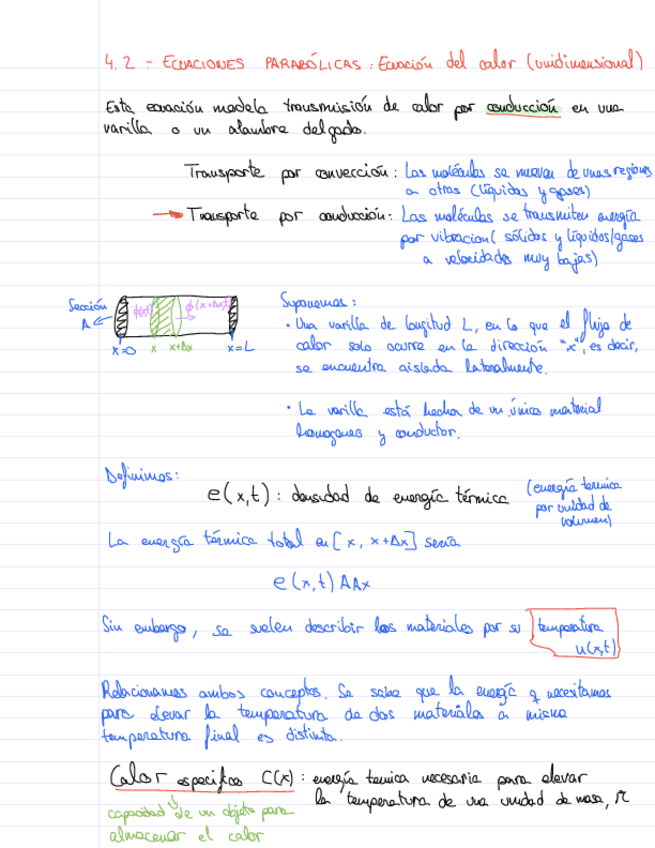 4.2 - ECUACIONES PARABÓLICAS: Ecuación del calor (unidimensional)
Esta ecuación modela transmisión de calor por conducción en una
varilla o un alambre delgado.
Transporte por convección: Las moléculas se mueven de unas regiones
a otras (líquidos y gases)
→ Transporte por conducción: Las moléculas se transmiten energía
por vibracion (sólidos y líquidos/gases
a velocidades muy bajas)
Sección
A
ϕ(x,t)
ϕ(x+Δx,t)
x=0 x x+Δx x=L
Suponemos:
• Una varilla de longitud L, en la que el flujo de
calor solo ocurre en la dirección "x", es decir,
se encuentra aislada lateralmente.
• La varilla está hecha de un único material
homogeneo y conductor.
Definimos:
e(x,t): densidad de energía térmica (energía termica
por unidad de
volumen)
La energía térmica total en [x, x+Δx] sería
e(x,t) AΔx
Sin embargo, se suelen describir los materiales por su temperatura
u(x,t)
Relacionamos ambos conceptos. Se sabe que la energía q necesitamos
para elevar la temperatura de dos materiales a misma
temperatura final es distinta.
Calor especifico C(x): energía termica necesaria para elevar
la temperatura de una unidad de masa,
capacidad de un objeto para
almacenar el calor